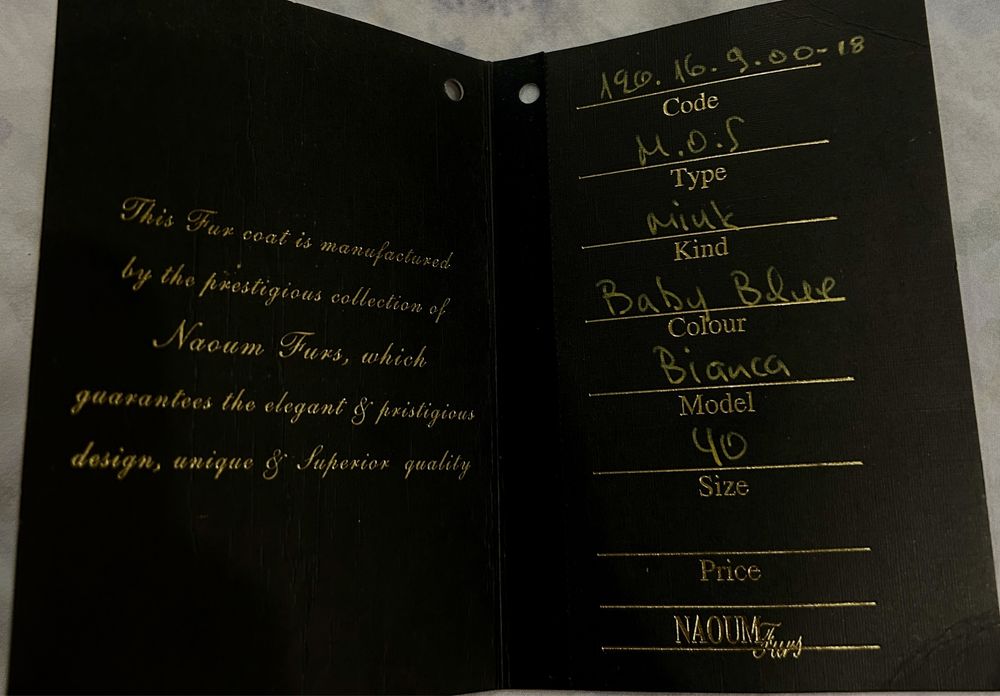 This Fur coat is manufactured
by the prestigious collection of
Naoum Furs, which
guarantees the elegant & pristigious
design, unique & Superior quality
196.16.9.00-18
Code
M.O.S
Type
mink
Kind
Baby Blue
Colour
Bianca
Model
40
Size
Price
NAOUM Furs